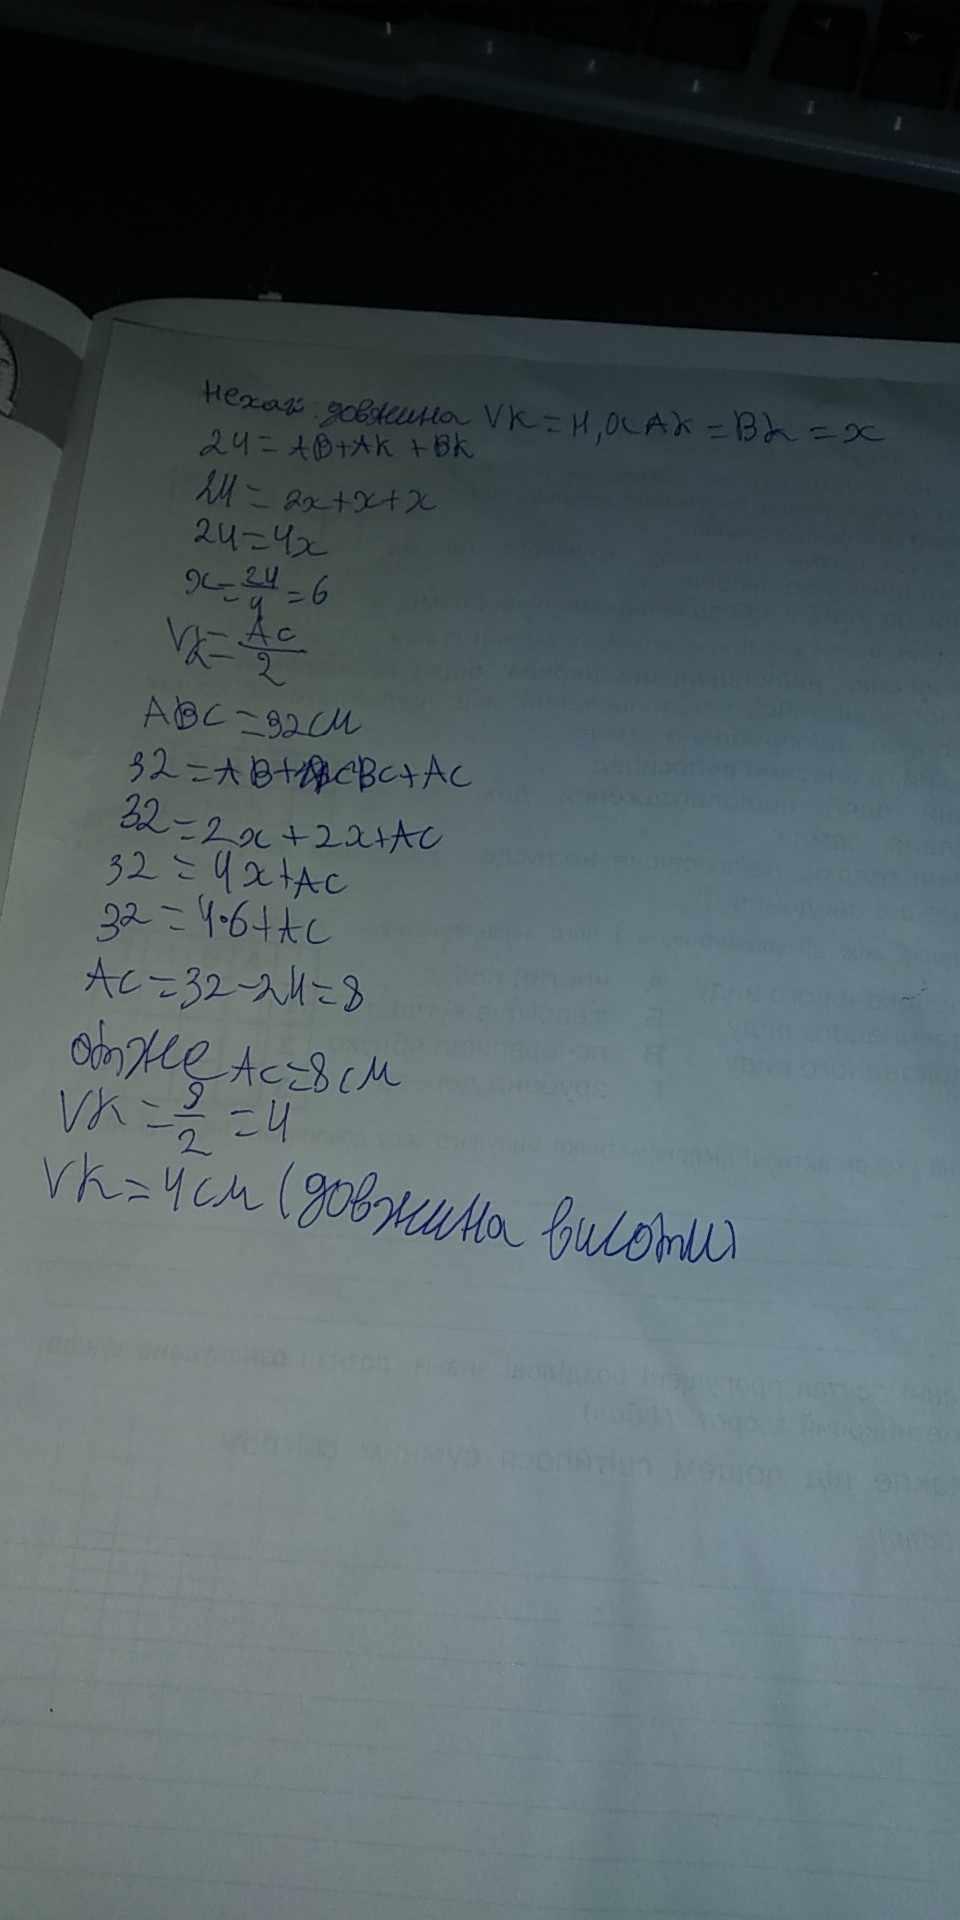 Нехай довжина VK = H, а AK = BK = x
24 = AB + AK + BK
24 = 2x + x + x
24 = 4x
x = 24/4 = 6
VK = AC/2
ABC = 32 см
32 = AB + BC + AC
32 = 2x + 2x + AC
32 = 4x + AC
32 = 4·6 + AC
AC = 32 - 24 = 8
отже AC = 8 см
VK = 8/2 = 4
VK = 4 см (довжина висоти)